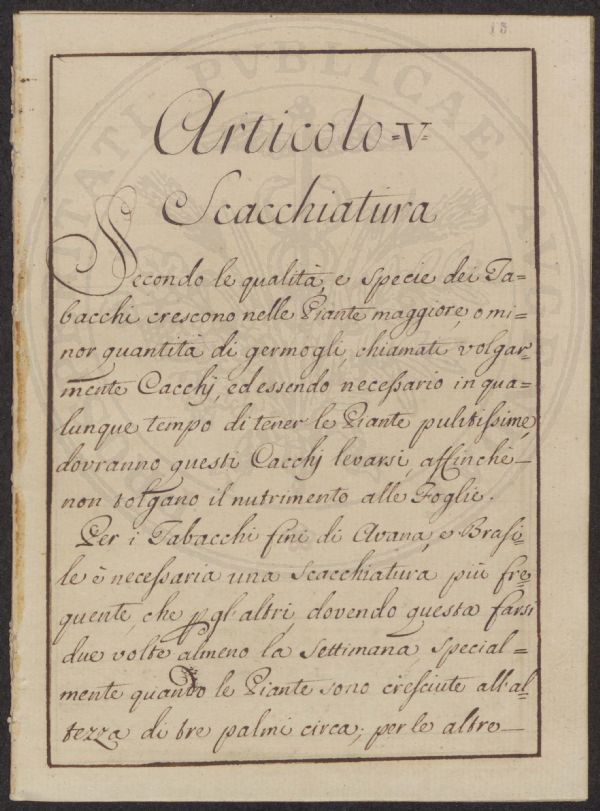 15
Articolo =V=
Scacchiatura
Secondo le qualità, e specie dei Ta=
bacchi crescono nelle Piante maggiore, o mi=
nor quantità di germogli, chiamati volgar=
mente Cacchj, ed essendo necessario in qua=
lunque tempo di tener le Piante pulitissime,
dovranno questi Cacchj levarsi, affinchè
non tolgano il nutrimento alle Foglie.
Per i Tabacchi fini di Avana, e Brasi=
le è necessaria una scacchiatura più fre=
quente, che p gl'altri, dovendo questa farsi
due volte almeno la Settimana, special=
mente quando le Piante sono cresciute all'al=
tezza di tre palmi circa; per le altre